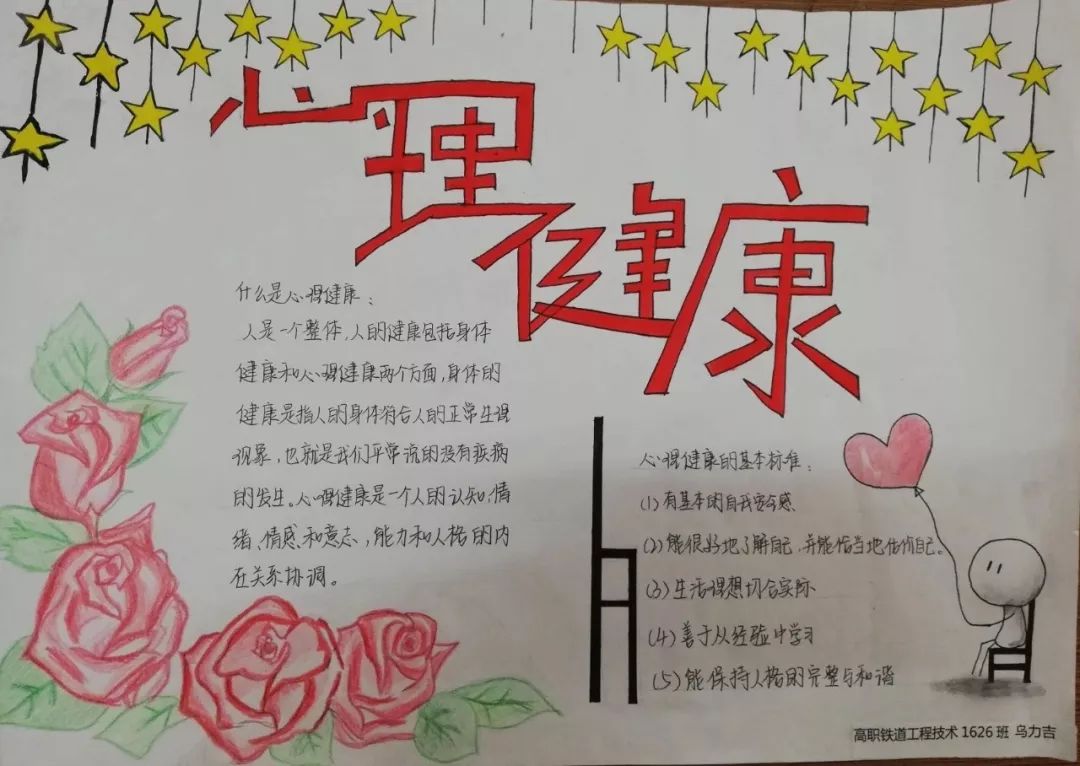 心理健康
什么是心理健康：
人是一个整体，人的健康包括身体
健康和心理健康两个方面，身体的
健康是指人的身体符合人的正常生理
现象，也就是我们平常说的没有疾病
的发生。心理健康是一个人的认知、情
绪、情感和意志，能力和人格的内
在关系协调。
心理健康的基本标准：
(1)有基本的自我安全感
(2)能很好地了解自己，并能恰当地估价自己。
(3)生活理想切合实际
(4)善于从经验中学习
(5)能保持人格的完整与和谐
高职铁道工程技术1626班 乌力吉